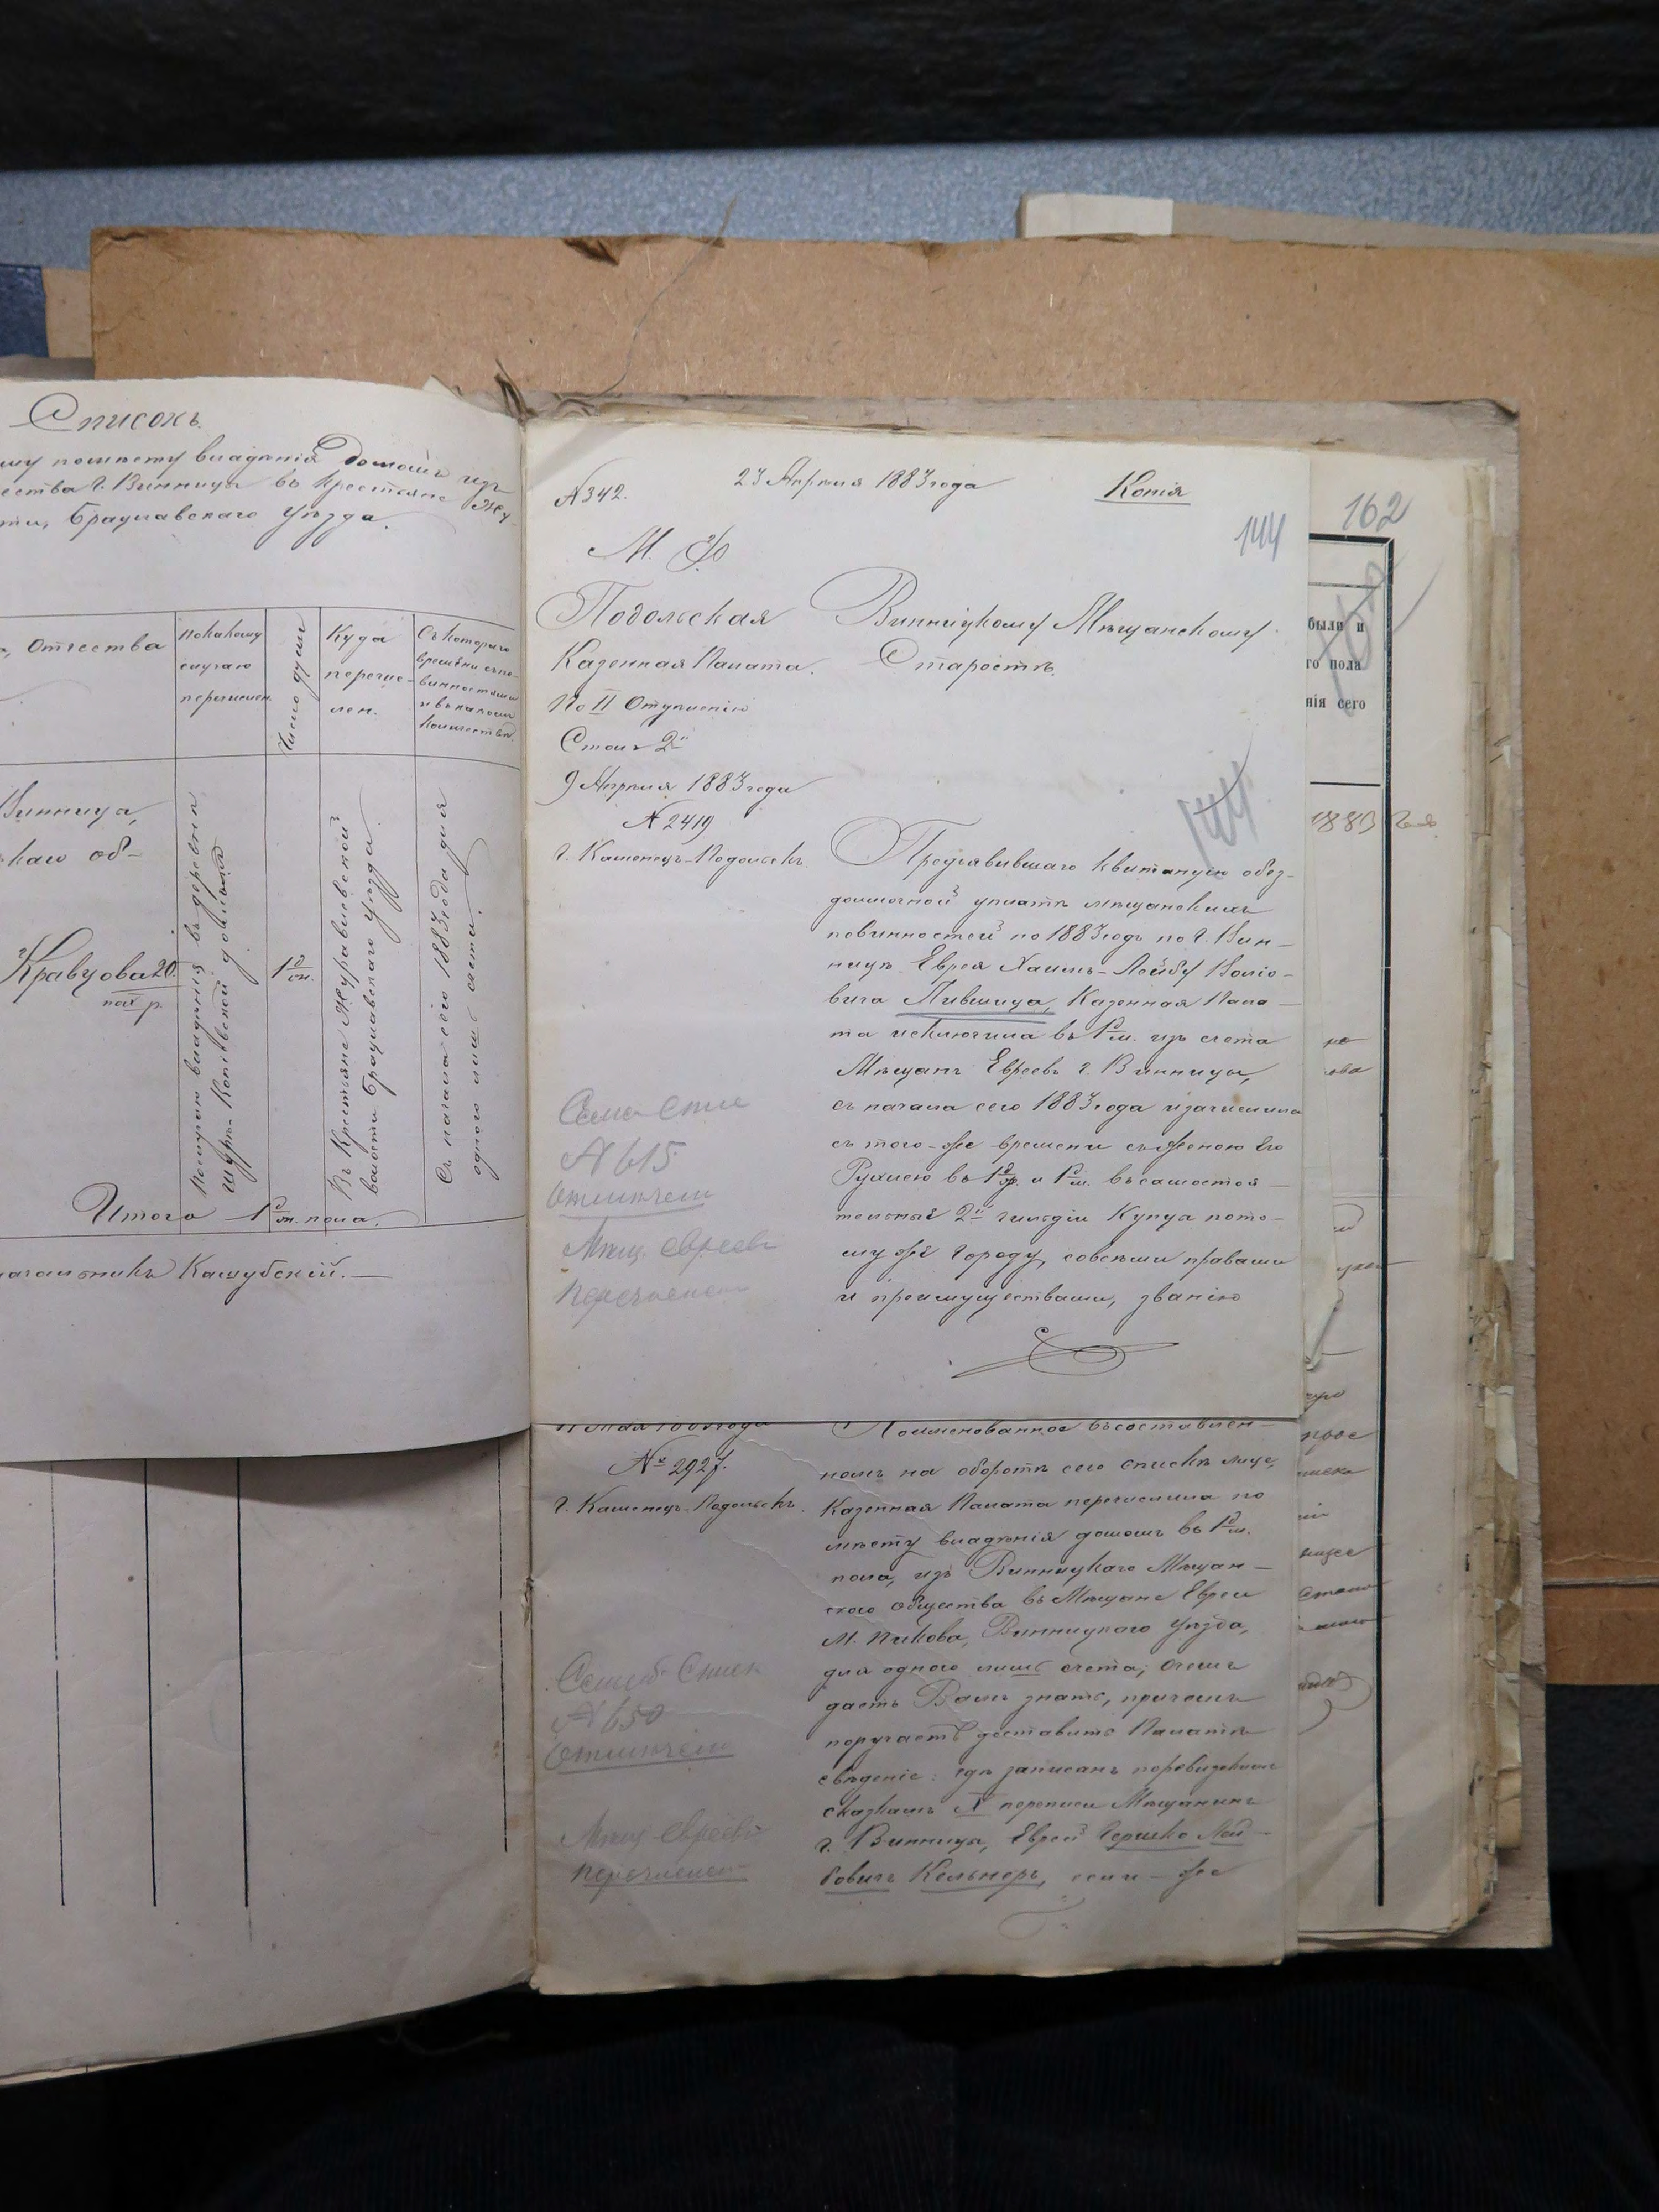 Списокъ
му полнету владѣнія домомъ изъ
ества г. Винницы въ крестьяне Жу
ти, Брацлавскаго уѣзда.
Отчества
По какому случаю перечислен.
Число душъ
Куда перечис-лен.
Съ котораго времени съ по-винностями и въ какомъ количествѣ.
Винница,
каго об-
Кравцова 20.
По случаю владѣнія въ деревнѣ
Шуръ-Копіевской
1 д. м.
Въ Крестьяне Журавлевской
волости Брацлавскаго уѣзда.
Съ начала сего 1883 года для
одного лишь счета.
Итого 1 д. м. пола.
Кашубскій.
№ 342.
23 Апрѣля 1883 года
Копія
144
М. Ф.
Подольская
Казенная Палата.
По II Отдѣленію
Столъ 2й
9 Апрѣля 1883 года
№ 2419
г. Каменецъ-Подольскъ.
Винницкому Мѣщанскому
Старостѣ.
144
Предъявившаго квитанцію о без-
доимочной уплатѣ мѣщанскихъ
повинностей по 1883 годъ по г. Вин-
ницѣ Еврея Хаимъ-Лейбу
вича Лившица, Казенная Пала-
та исключила въ 1 д. м. изъ счета
Мѣщанъ Евреевъ г. Винницы,
съ начала сего 1883 года и зачислила
съ того-же времени съ женою его
Рухлею въ 1 д. м. и 1 д. ж. въ самостоя-
тельные 2й гильдіи Купца по то-
му же городу, со всѣми правами
и преимуществами, званію
№ 615
отмѣчено
Мѣщ. евреевъ
перечислен
11 Мая 1883 года
№ 2927.
г. Каменецъ-Подольскъ.
Поименованное въ составлен-
номъ на оборотѣ сего спискѣ лице,
Казенная Палата перечислила по
мѣсту владѣнія домомъ въ 1 д. м.
пола, изъ Винницкаго Мѣщан-
скаго общества въ Мѣщане Евреи
М. Пикова, Винницкаго уѣзда,
для одного лишь счета; о чемъ
даетъ Вамъ знать, причемъ
поручаетъ доставить Палатѣ
свѣденіе: гдѣ записанъ по ревизскимъ
сказкамъ X переписи Мѣщанинъ
г. Винницы, Еврей Гершко Лей-
бовичъ Кельнеръ, если-же
№ 650
отмѣчено
Мѣщ. евреевъ
перечислен
162
были и
го пола
нія сего
1883